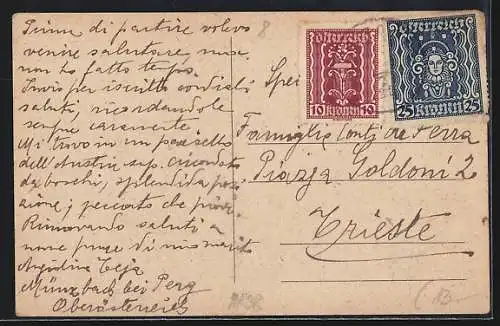 Prima di partire volevo
venire salutare ma
non ho fatto tempo.
Invio per iscritto cordiali
saluti ricordandole
sempre caramente.
Mi trovo in un paesello
dell'Austria sup. circondato
da boschi, splendida posi
zione; peccato che piove.
Rinnovando saluti a
nome pure di mio marito
Teja
Münzbach bei Perg
Oberösterreich
8
Spei
österreich
10 kronen 10
österreich
25 kronen 25
Famiglia Conti de Ferra
Piazza Goldoni 2
Trieste